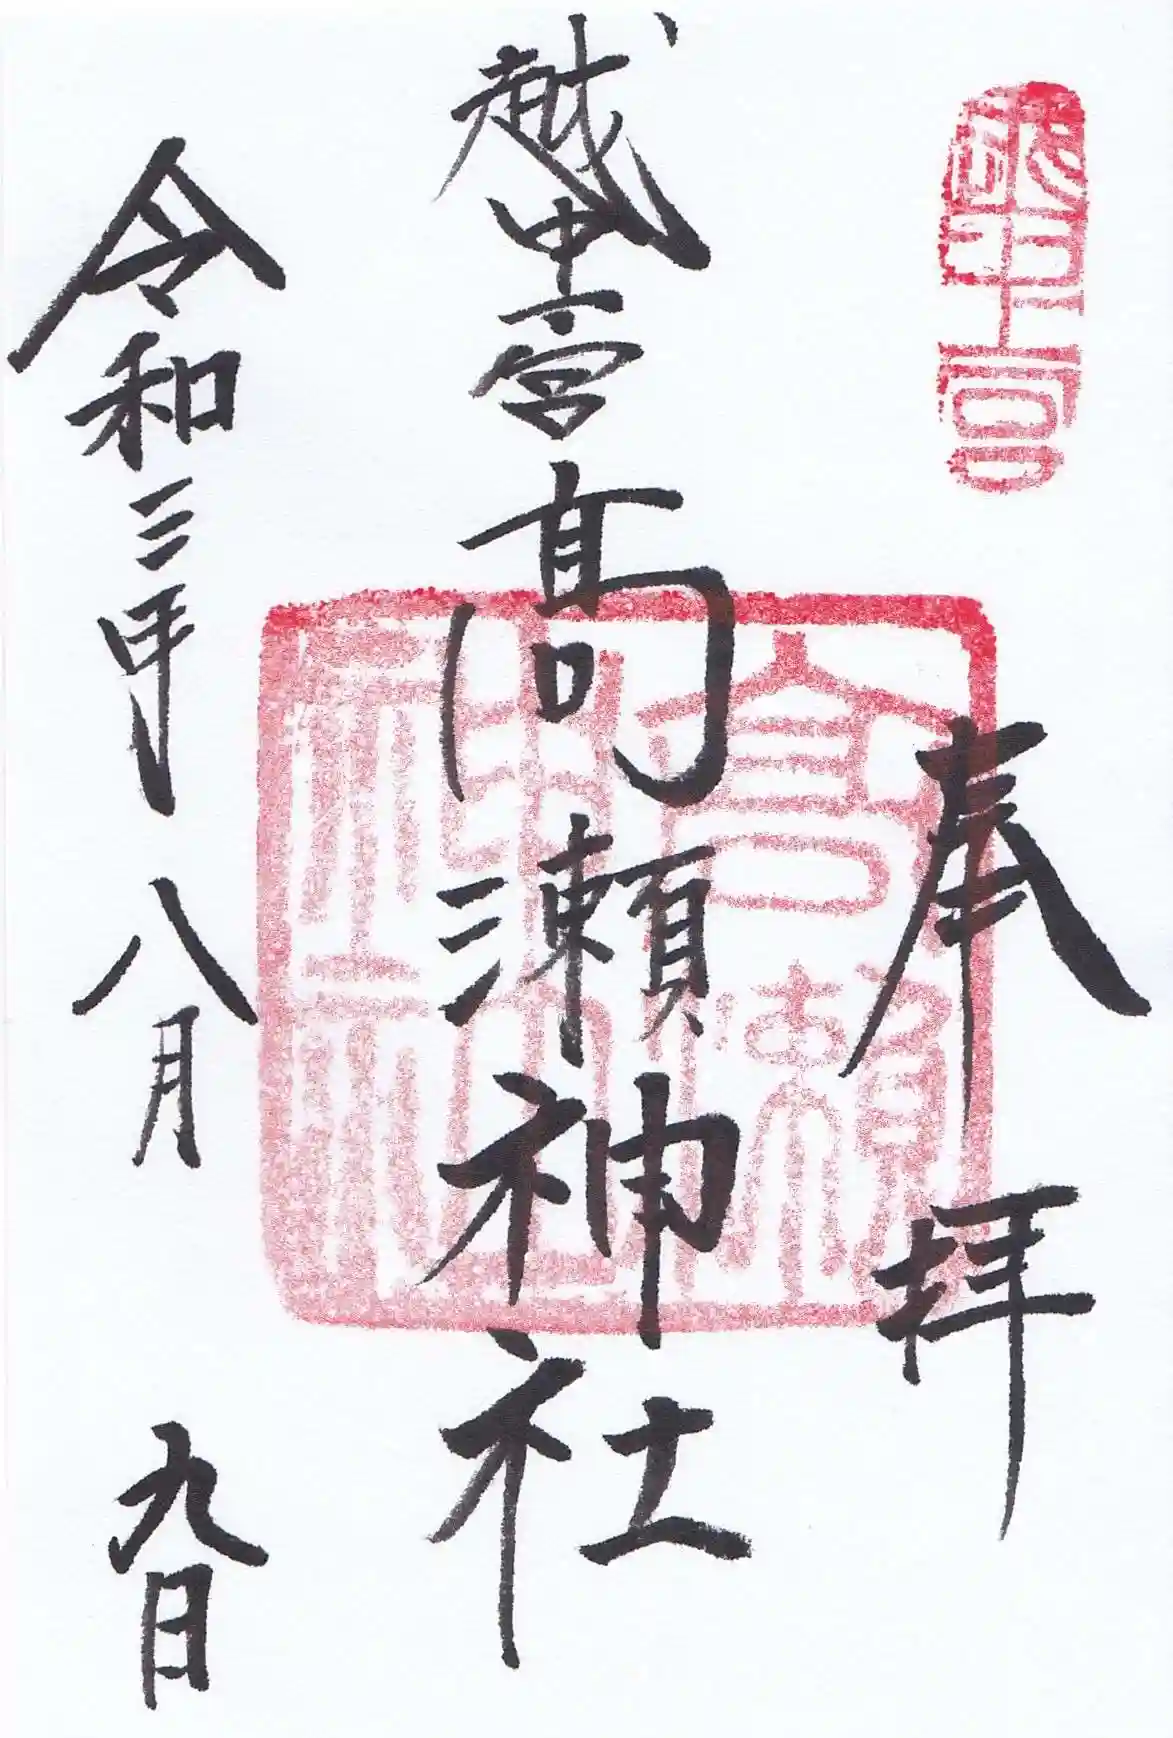 越中一宮
奉拝
越中一宮 髙瀬神社
高瀬
神社
令和三年八月九日